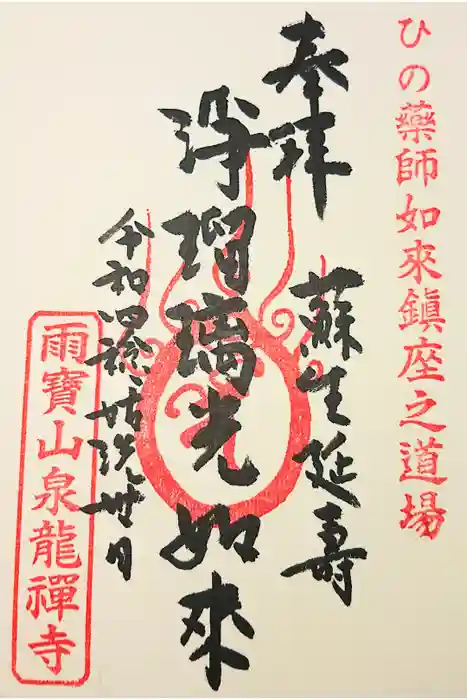 ひの藥師如來鎮座之道場
奉拝
蘇生延壽
浄瑠璃光如來
令和四稔姑洗卅日
雨寶山泉龍禪寺